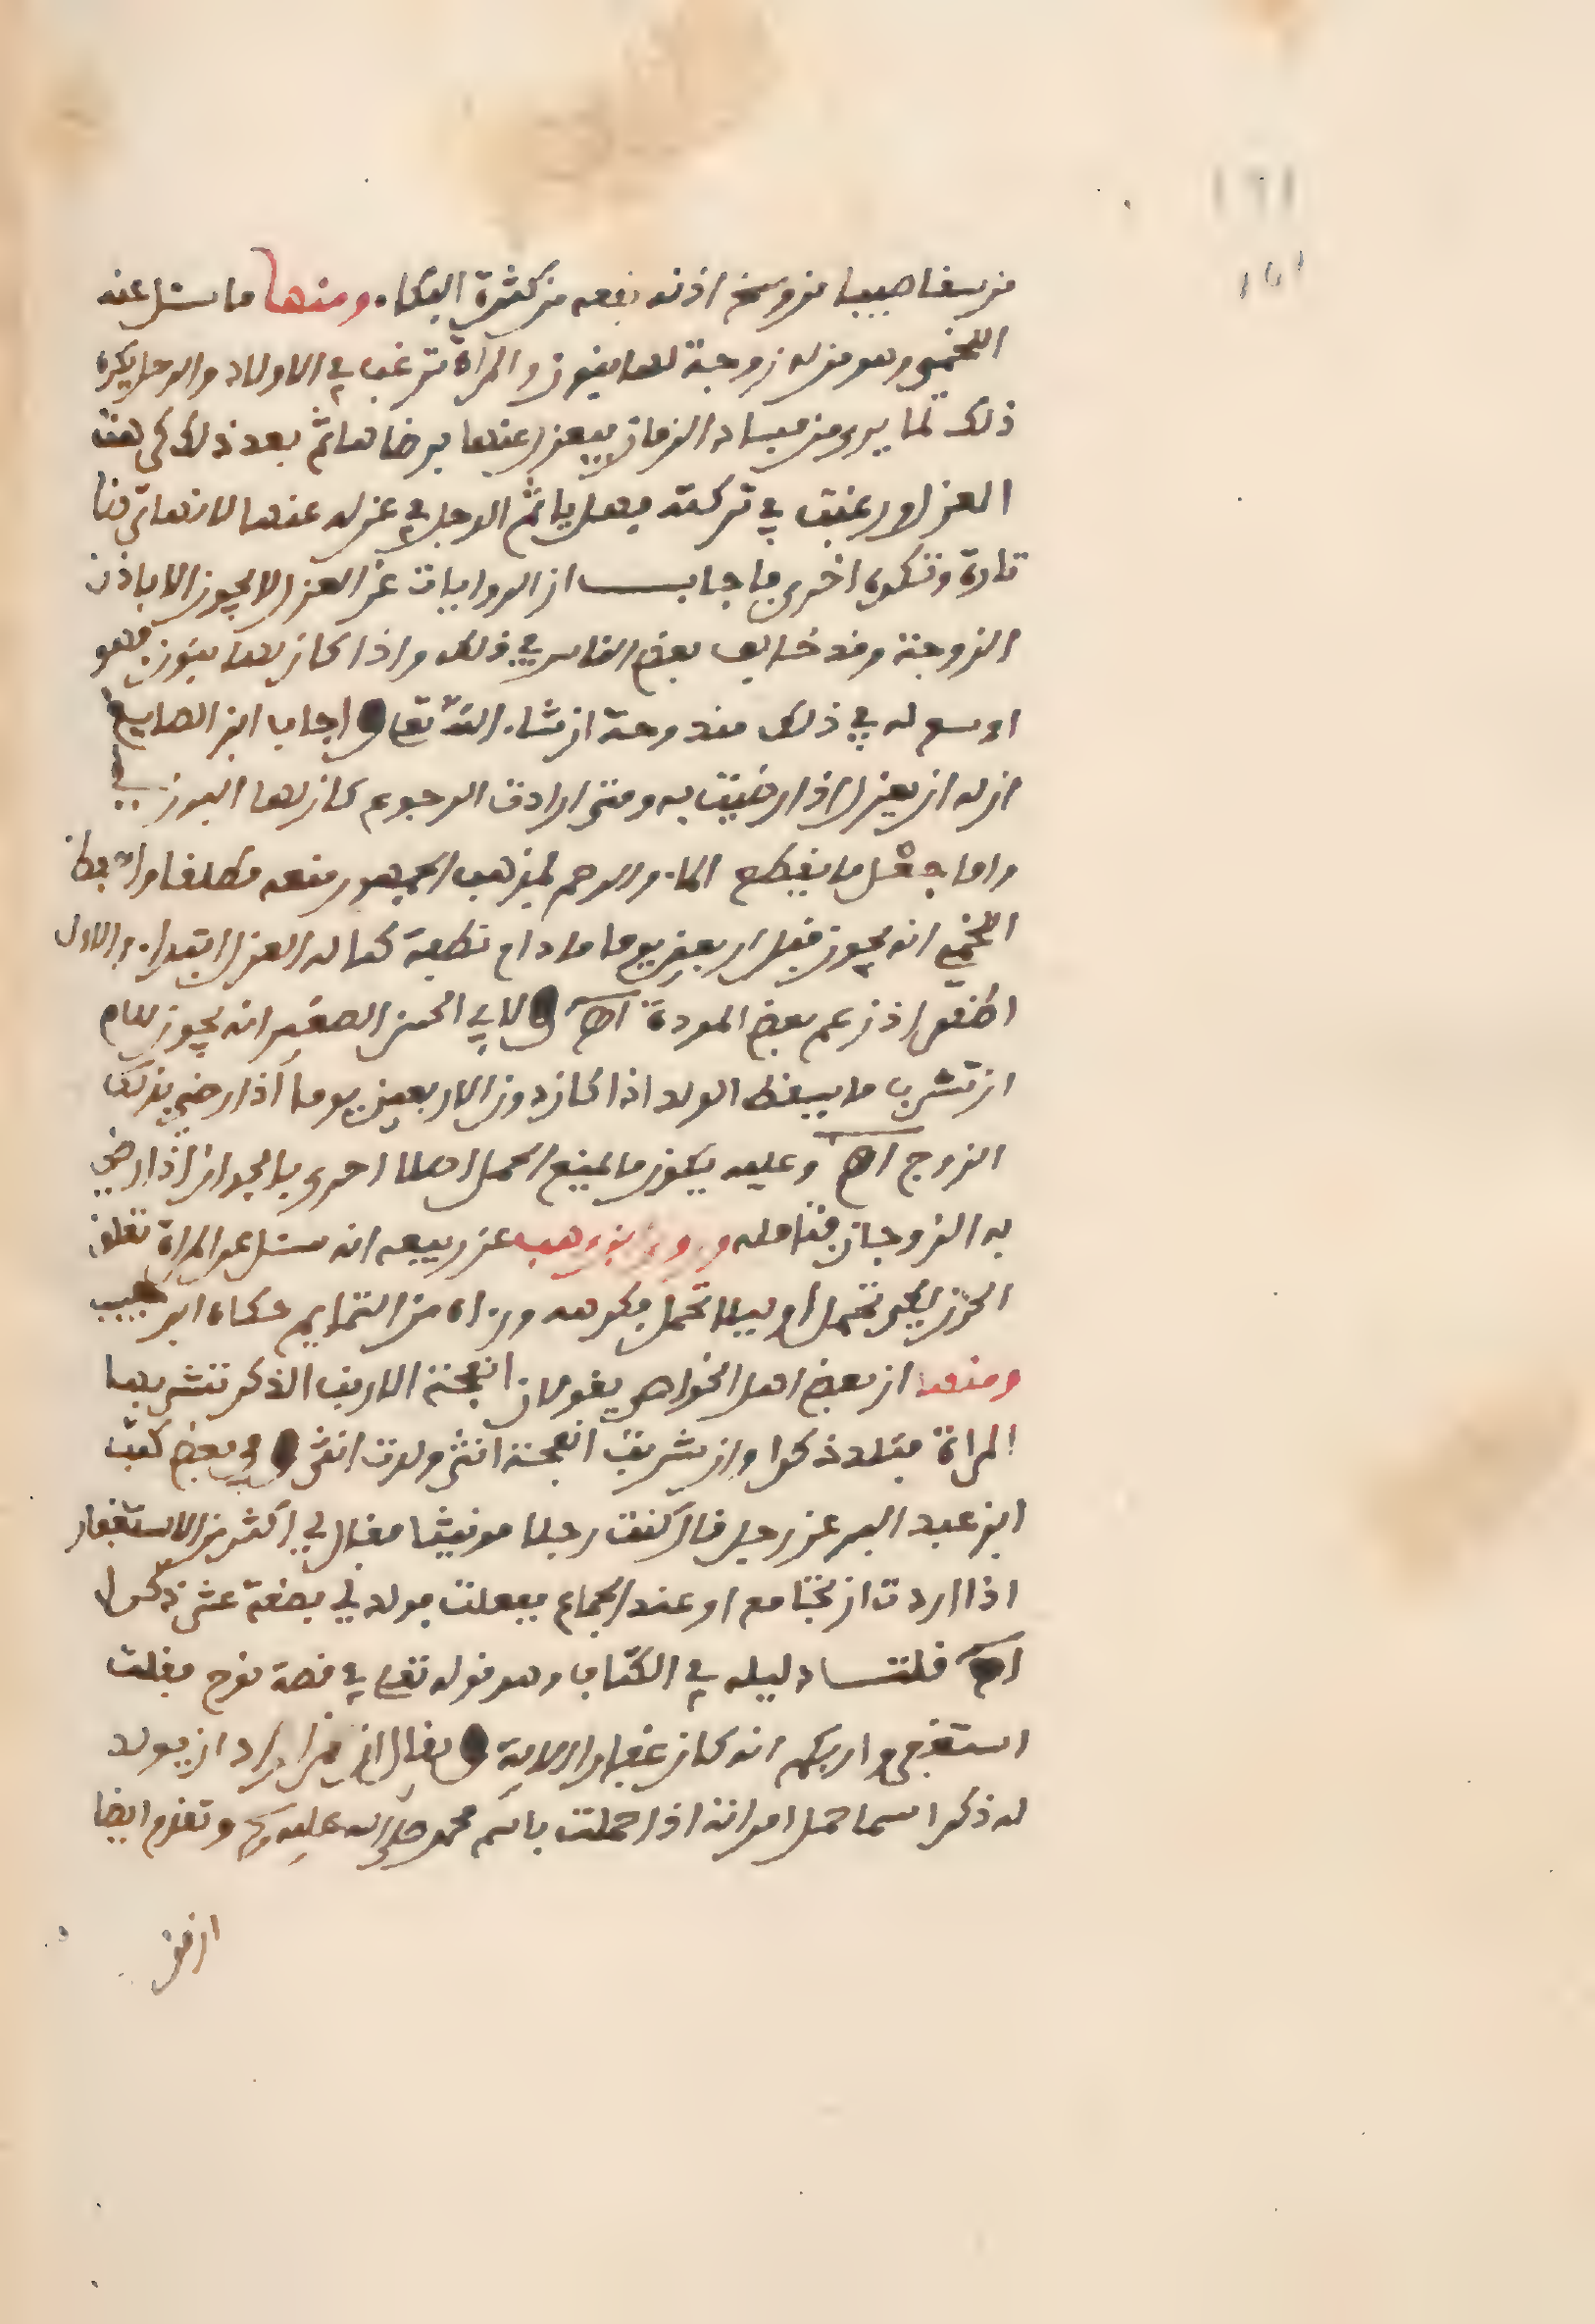 ١٦١
١٥١
من سقا صبيا من وسخ اذنه نفعه من كثرة البكاء ومنها ما سئل عنه
اللخمي وهو من له زوجة لها بنون والمراة ترغب في الاولاد والرجل يكره
ذلك لما يرى من فساد الزمان فيعزل عنها برضاها ثم بعد ذلك كرهت
العزل ورغبت في تركه فهل ياثم الرجل في عزله عنها لانها ترضا
تارة وتكره اخرى فاجاب ان الروايات عن العزل لا يجوز الا باذن
الزوجة وقد خالف بعض الناس في ذلك واذا كان لها بنون فهو
اوسع له في ذلك مندوحة ان شاء الله تعالى واجاب ابن الصايغ
ان له ان يعزل اذا رضيت به ومتى ارادت الرجوع كان لها
واما جعل ما يقطع الماء والرحم فمذهب الجمهور منعه مطلقا
اللخمي انه يجوز قبل اربعين يوما ما دام نطفة كما له العزل ابتداء والاول
اظهر اذ زعم بعض الموءدة اهـ ولابي الحسن الصغير انه يجوز للام
ان تشرب ما يسقط الولد اذا كان دون الاربعين يوما اذا رضي بذلك
الزوج اهـ وعليه يكون ما يمنع الحمل اصلا احرى بالجواز اذا رضي
به الزوجان فتامله وروى ابن وهب عن ربيعة انه سئل عن المراة تعلق
الخرز لكي تحمل او ليلا تحمل فكرهه ورءاه من التمايم حكاه ابن حبيب
ومنها ان بعض اهل الخواص يقول ان انفحة الارنب الذكر تشربها
المراة فتلد ذكرا وان شربت انفحة انثى ولدت انثى وفي بعض كتب
ابن عبد البر عن رجل قال كنت رجلا مونيثا فقال لي اكثر من الاستغفار
اذا اردت ان تجامع او عند الجماع ففعلت فولد لي بضعة عشر ذكرا
اهـ قلت دليله في الكتاب وهو قوله تعلى في قصة نوح فقلت
استغفروا ربكم انه كان غفارا الاية ويقال ان من اراد ان يولد
له ذكرا سما حمل امراته اذا حملت باسم محمد صلى الله عليه وسلم وتقدم ايضا
ان من